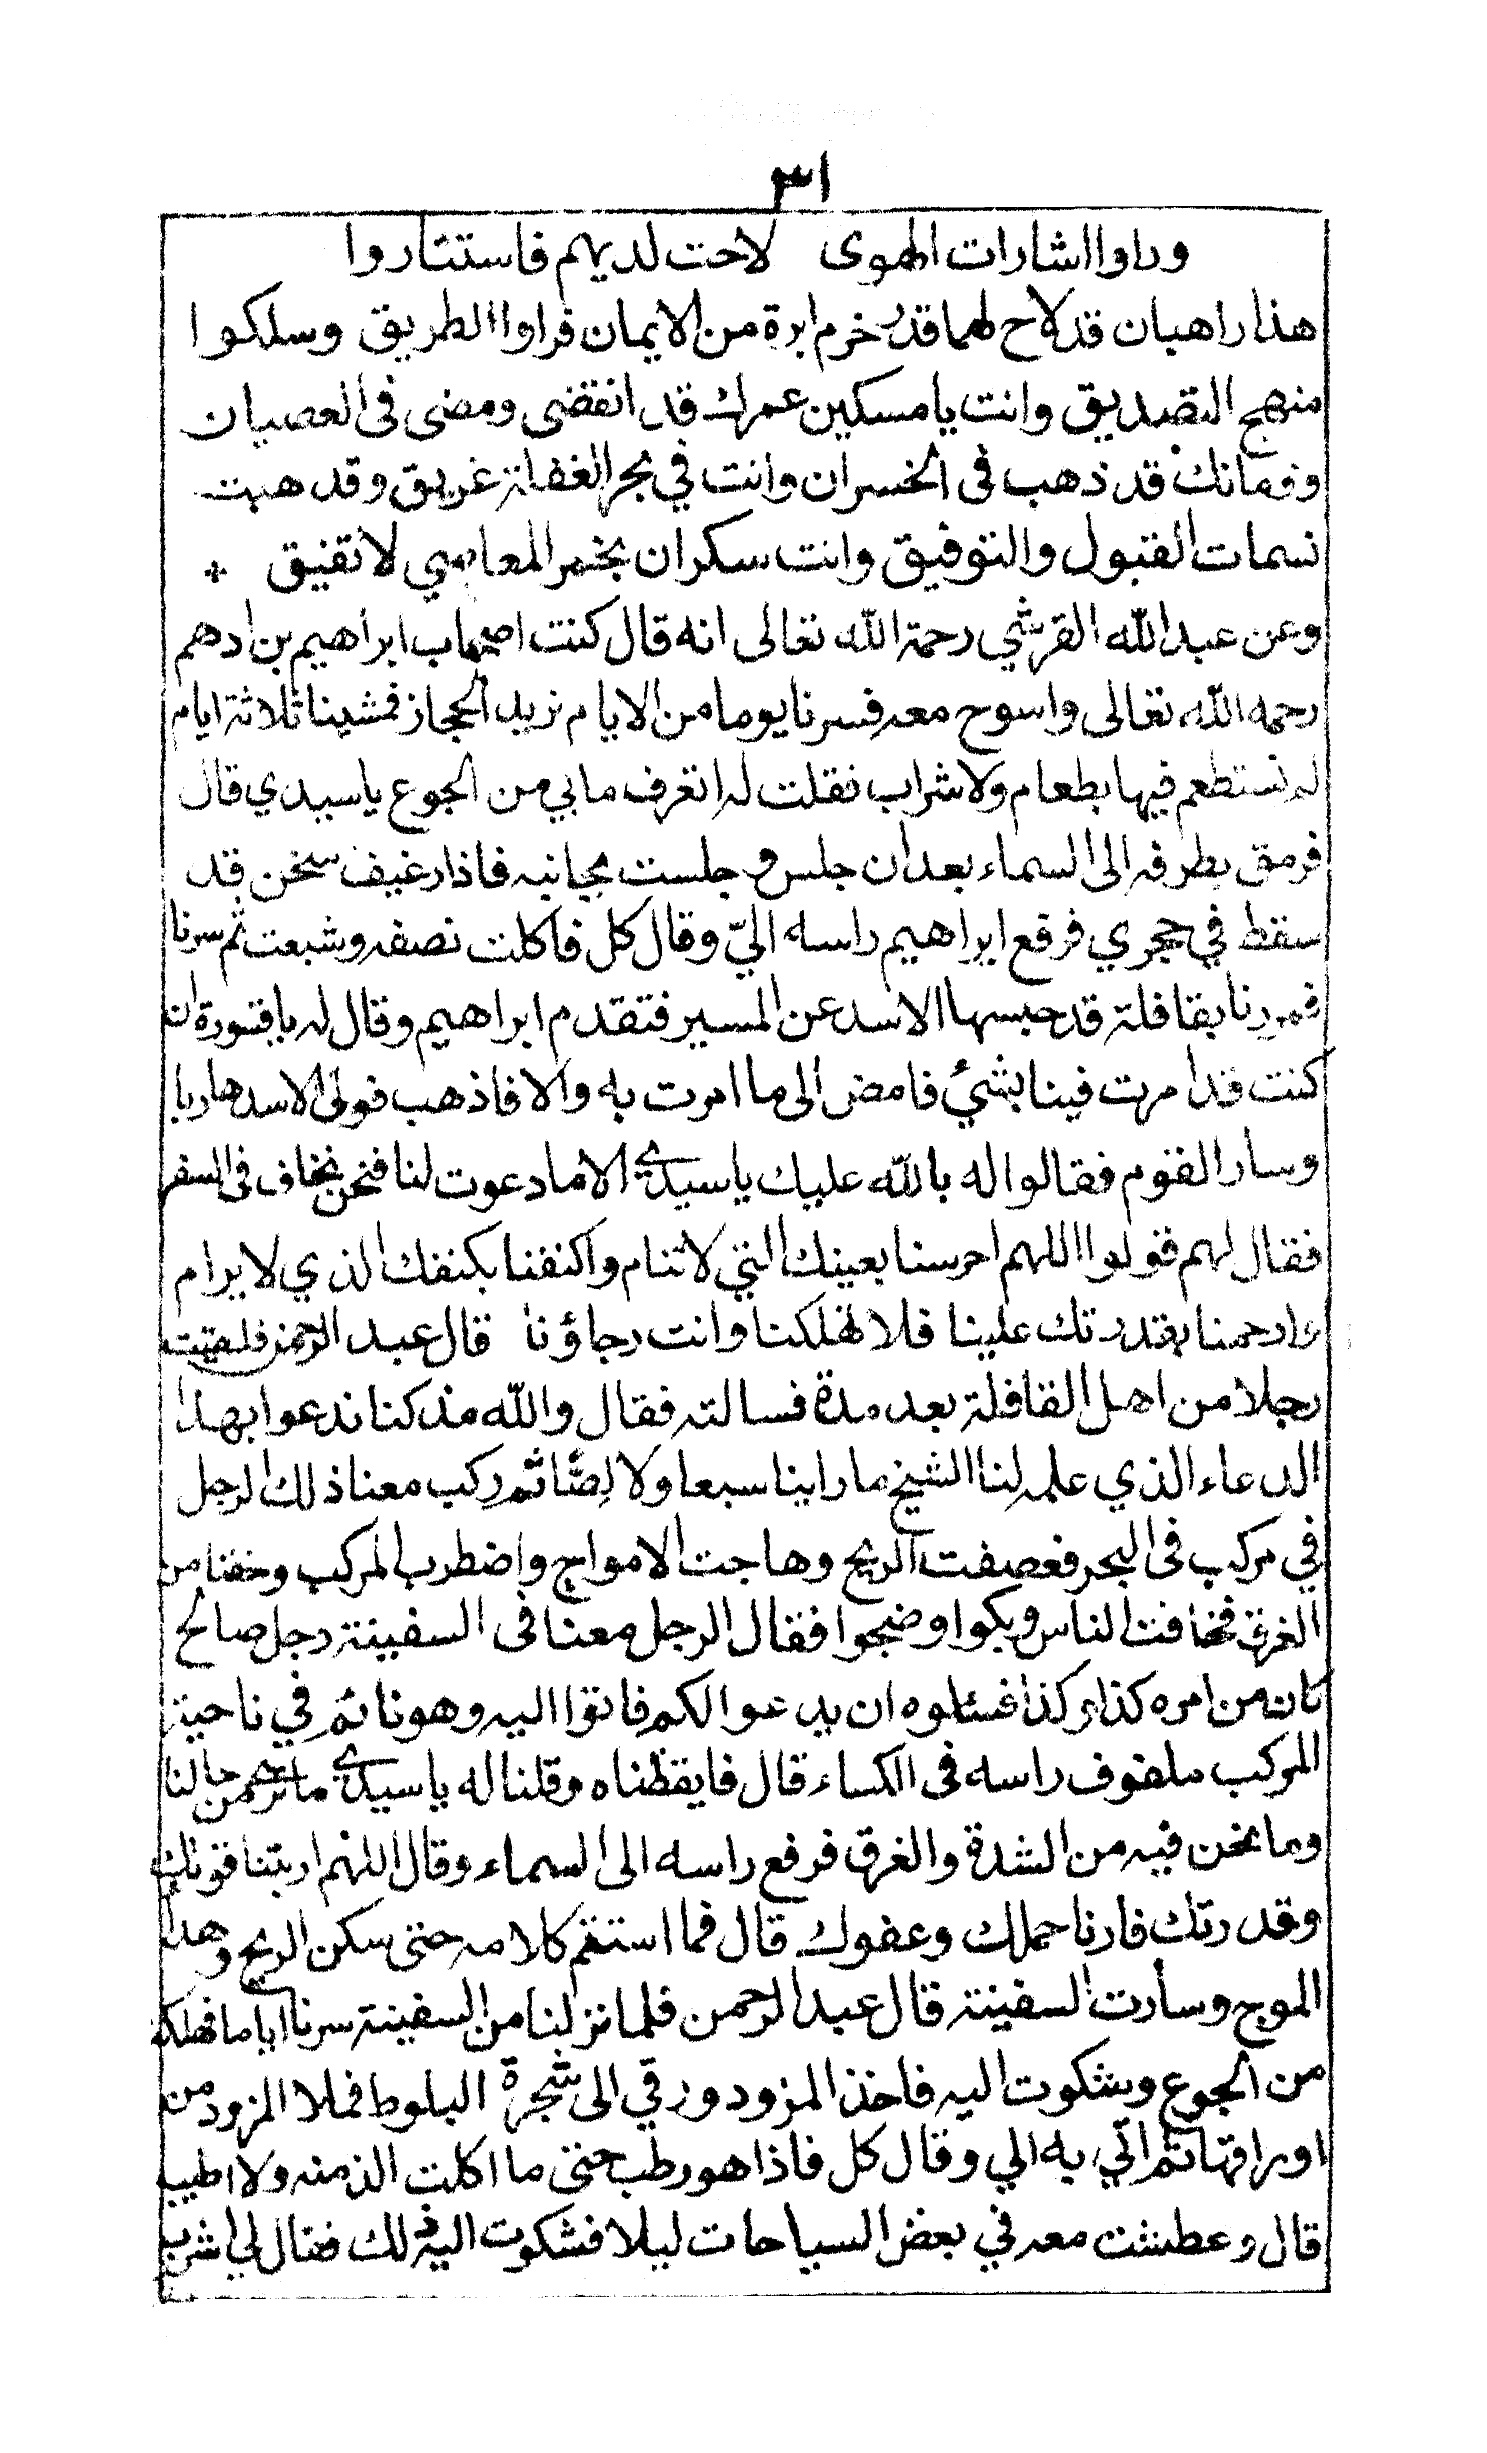 ٣١
وراوا اشارات الهوى لاحت لديهم فاستناروا
هذا راهبان قد لاح لهما قدر خرم ابرة من الايمان فراوا الطريق وسلكوا
منهج التصديق وانت يا مسكين عمرك قد انقضى ومضى فى العصيان
وزمانك قد ذهب فى الخسران وانت في بحر الغفلة غريق وقد هبت
نسمات القبول والتوفيق وانت سكران بخمر المعاصي لا تفيق *
وعن عبد الله القرشي رحمة الله تعالى انه قال كنت اصحاب ابراهيم بن ادهم
رحمه الله تعالى واسوح معه فسرنا يوما من الايام نريد الحجاز فمشينا ثلاثة ايام
لم نستطعم فيها بطعام ولا شراب فقلت له اتعرف ما بي من الجوع يا سيدي قال
فرمق بطرفه الى السماء بعد ان جلس وجلست بجانبه فاذا رغيف سخن قد
سقط في حجري فرفع ابراهيم راسه اليّ وقال كل فاكلت نصفه وشبعت ثم سرنا
فمررنا بقافلة قد حبسها الاسد عن المسير فتقدم ابراهيم وقال له يا قسورة ان
كنت قد امرت فينا بشئ فامض الى ما امرت به والا فاذهب فولى الاسد هاربا
وسار القوم فقالوا له بالله عليك يا سيدي الا ما دعوت لنا فنحن نخاف فى السفر
فقال لهم قولوا اللهم احرسنا بعينك التي لا تنام واكنفنا بكنفك الذي لا يرام
وارحمنا بقدرتك علينا فلا تهلكنا وانت رجاؤنا قال عبد الرحمن فلقيت
رجلا من اهل القافلة بعد مدة فسالته فقال والله مذ كنا ندعوا بهذا
الدعاء الذي علمه لنا الشيخ ما راينا سبعا ولا لصًّا ثم ركب معنا ذلك الرجل
في مركب فى البحر فعصفت الريح وهاجت الامواج واضطرب المركب وخفنا من
الغرق فخافت الناس وبكوا وضجوا فقال الرجل معنا فى السفينة رجل صالح
كان من امره كذا وكذا فسئلوه ان يدعوا لكم فاتوا اليه وهو نائم في ناحية
المركب ملفوف راسه فى الكساء قال فايقظناه وقلنا له يا سيدي ما ترحم حالنا
وما نحن فيه من الشدة والغرق فرفع راسه الى السماء وقال اللهم اريتنا قوتك
وقدرتك فارنا حملك وعفوك قال فما استتم كلامه حتى سكن الريح وهدا
الموج وسارت السفينة قال عبد الرحمن فلما نزلنا من السفينة سرنا اياما فهلكت
من الجوع وشكوت اليه فاخذ المزود ورقي الى شجرة البلوط فملا المزود من
اوراقها ثم اتي به الي وقال كل فاذا هو رطب حتى ما اكلت الذ منه ولا اطيب
قال وعطشت معه في بعض السياحات ليلا فشكوت اليه ذلك فقال لي اشرب